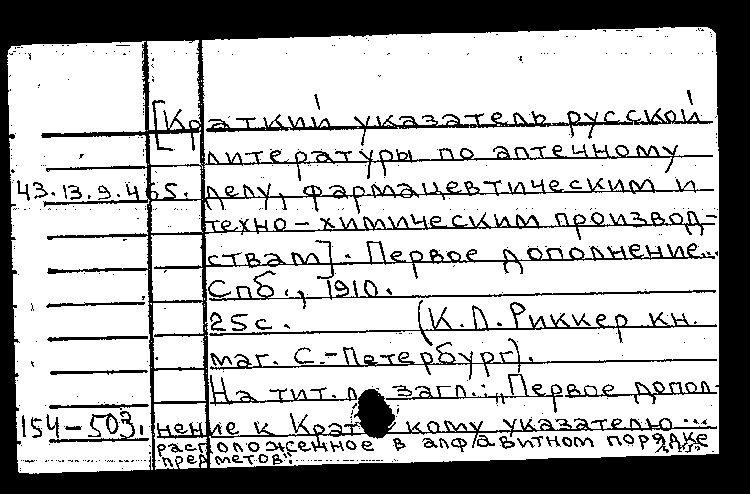 [Краткий указатель русской
литературы по аптечному
43.13.9.465. делу, фармацевтическим и
техно-химическим производ-
ствам]. Первое дополнение...
Спб., 1910.
25с. (К.Л.Риккер кн.
маг. С.-Петербург).
На тит.л. загл.: „Первое допол-
154-503. нение к Краткому указателю...
расположенное в алфавитном порядке
предметов".